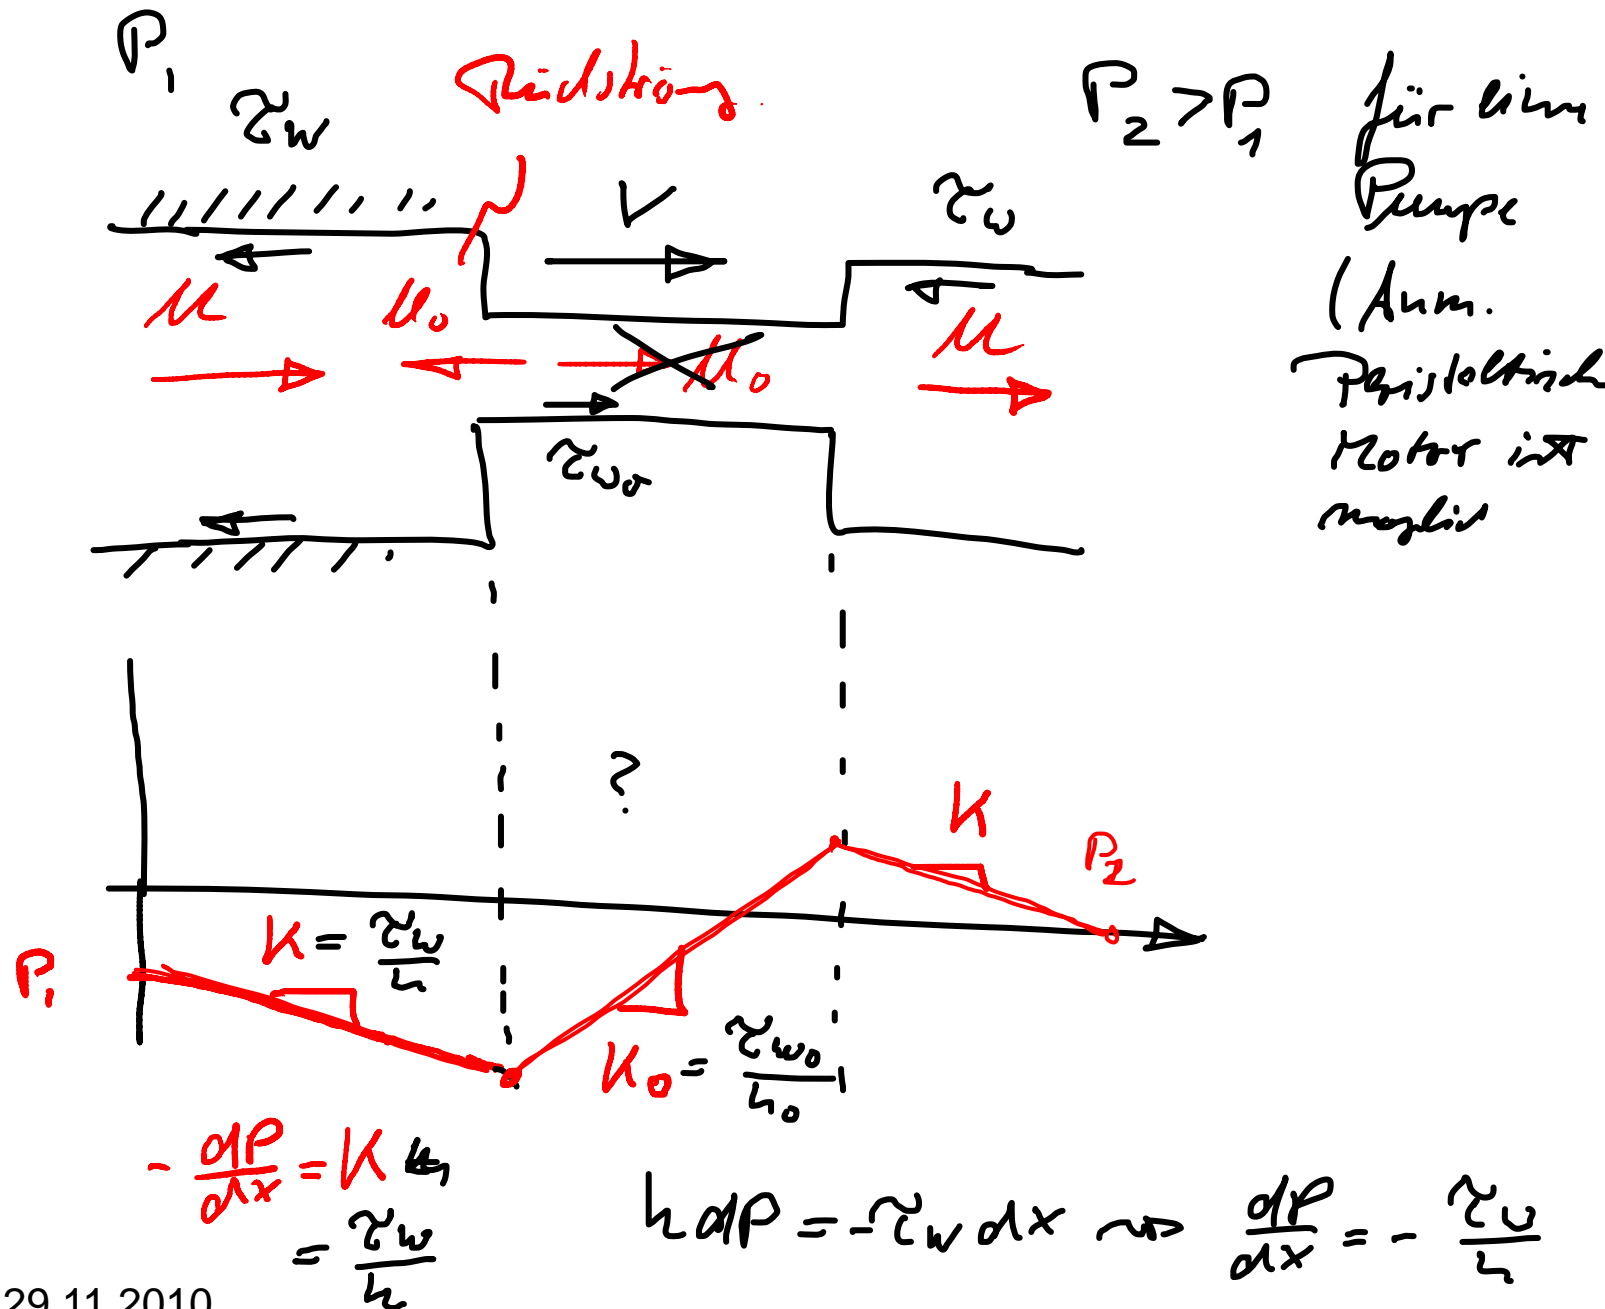 P₁
τ_w
Rückströmg.
P₂ > P₁ für eine
Pumpe
(Anm.
Peristaltisch
Motor ist
möglich
V
τ_w
u
u₀
u₀
u
τ_w₀
?
K
P₂
P₁
K = τ_w / h
K₀ = τ_w₀ / h₀
- dP/dx = K
= τ_w / h
h dP = - τ_w dx ⇝ dP/dx = - τ_w / h
29.11.2010